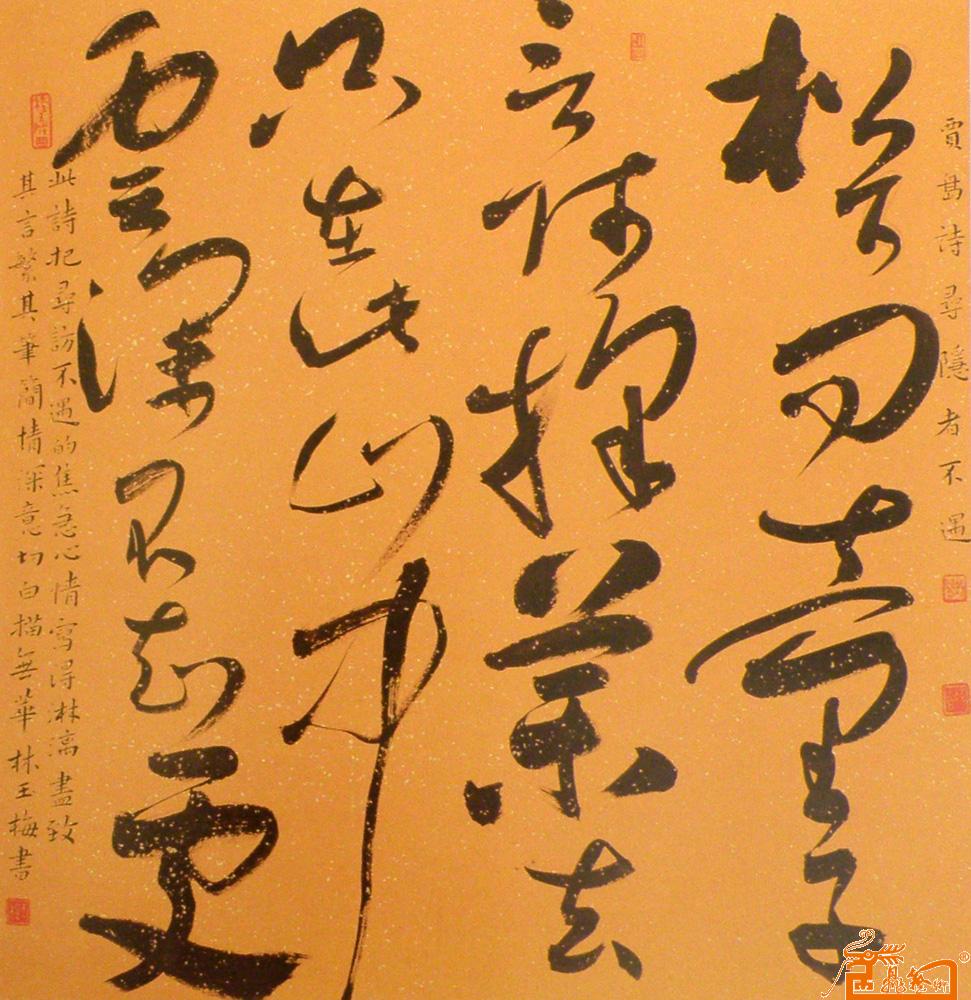 賈島詩尋隱者不遇
松下問童子
言師採藥去
只在此山中
雲深不知處
此詩把尋訪不遇的焦急心情寫得淋漓盡致
其言繁其筆簡情深意切白描無華林玉梅書